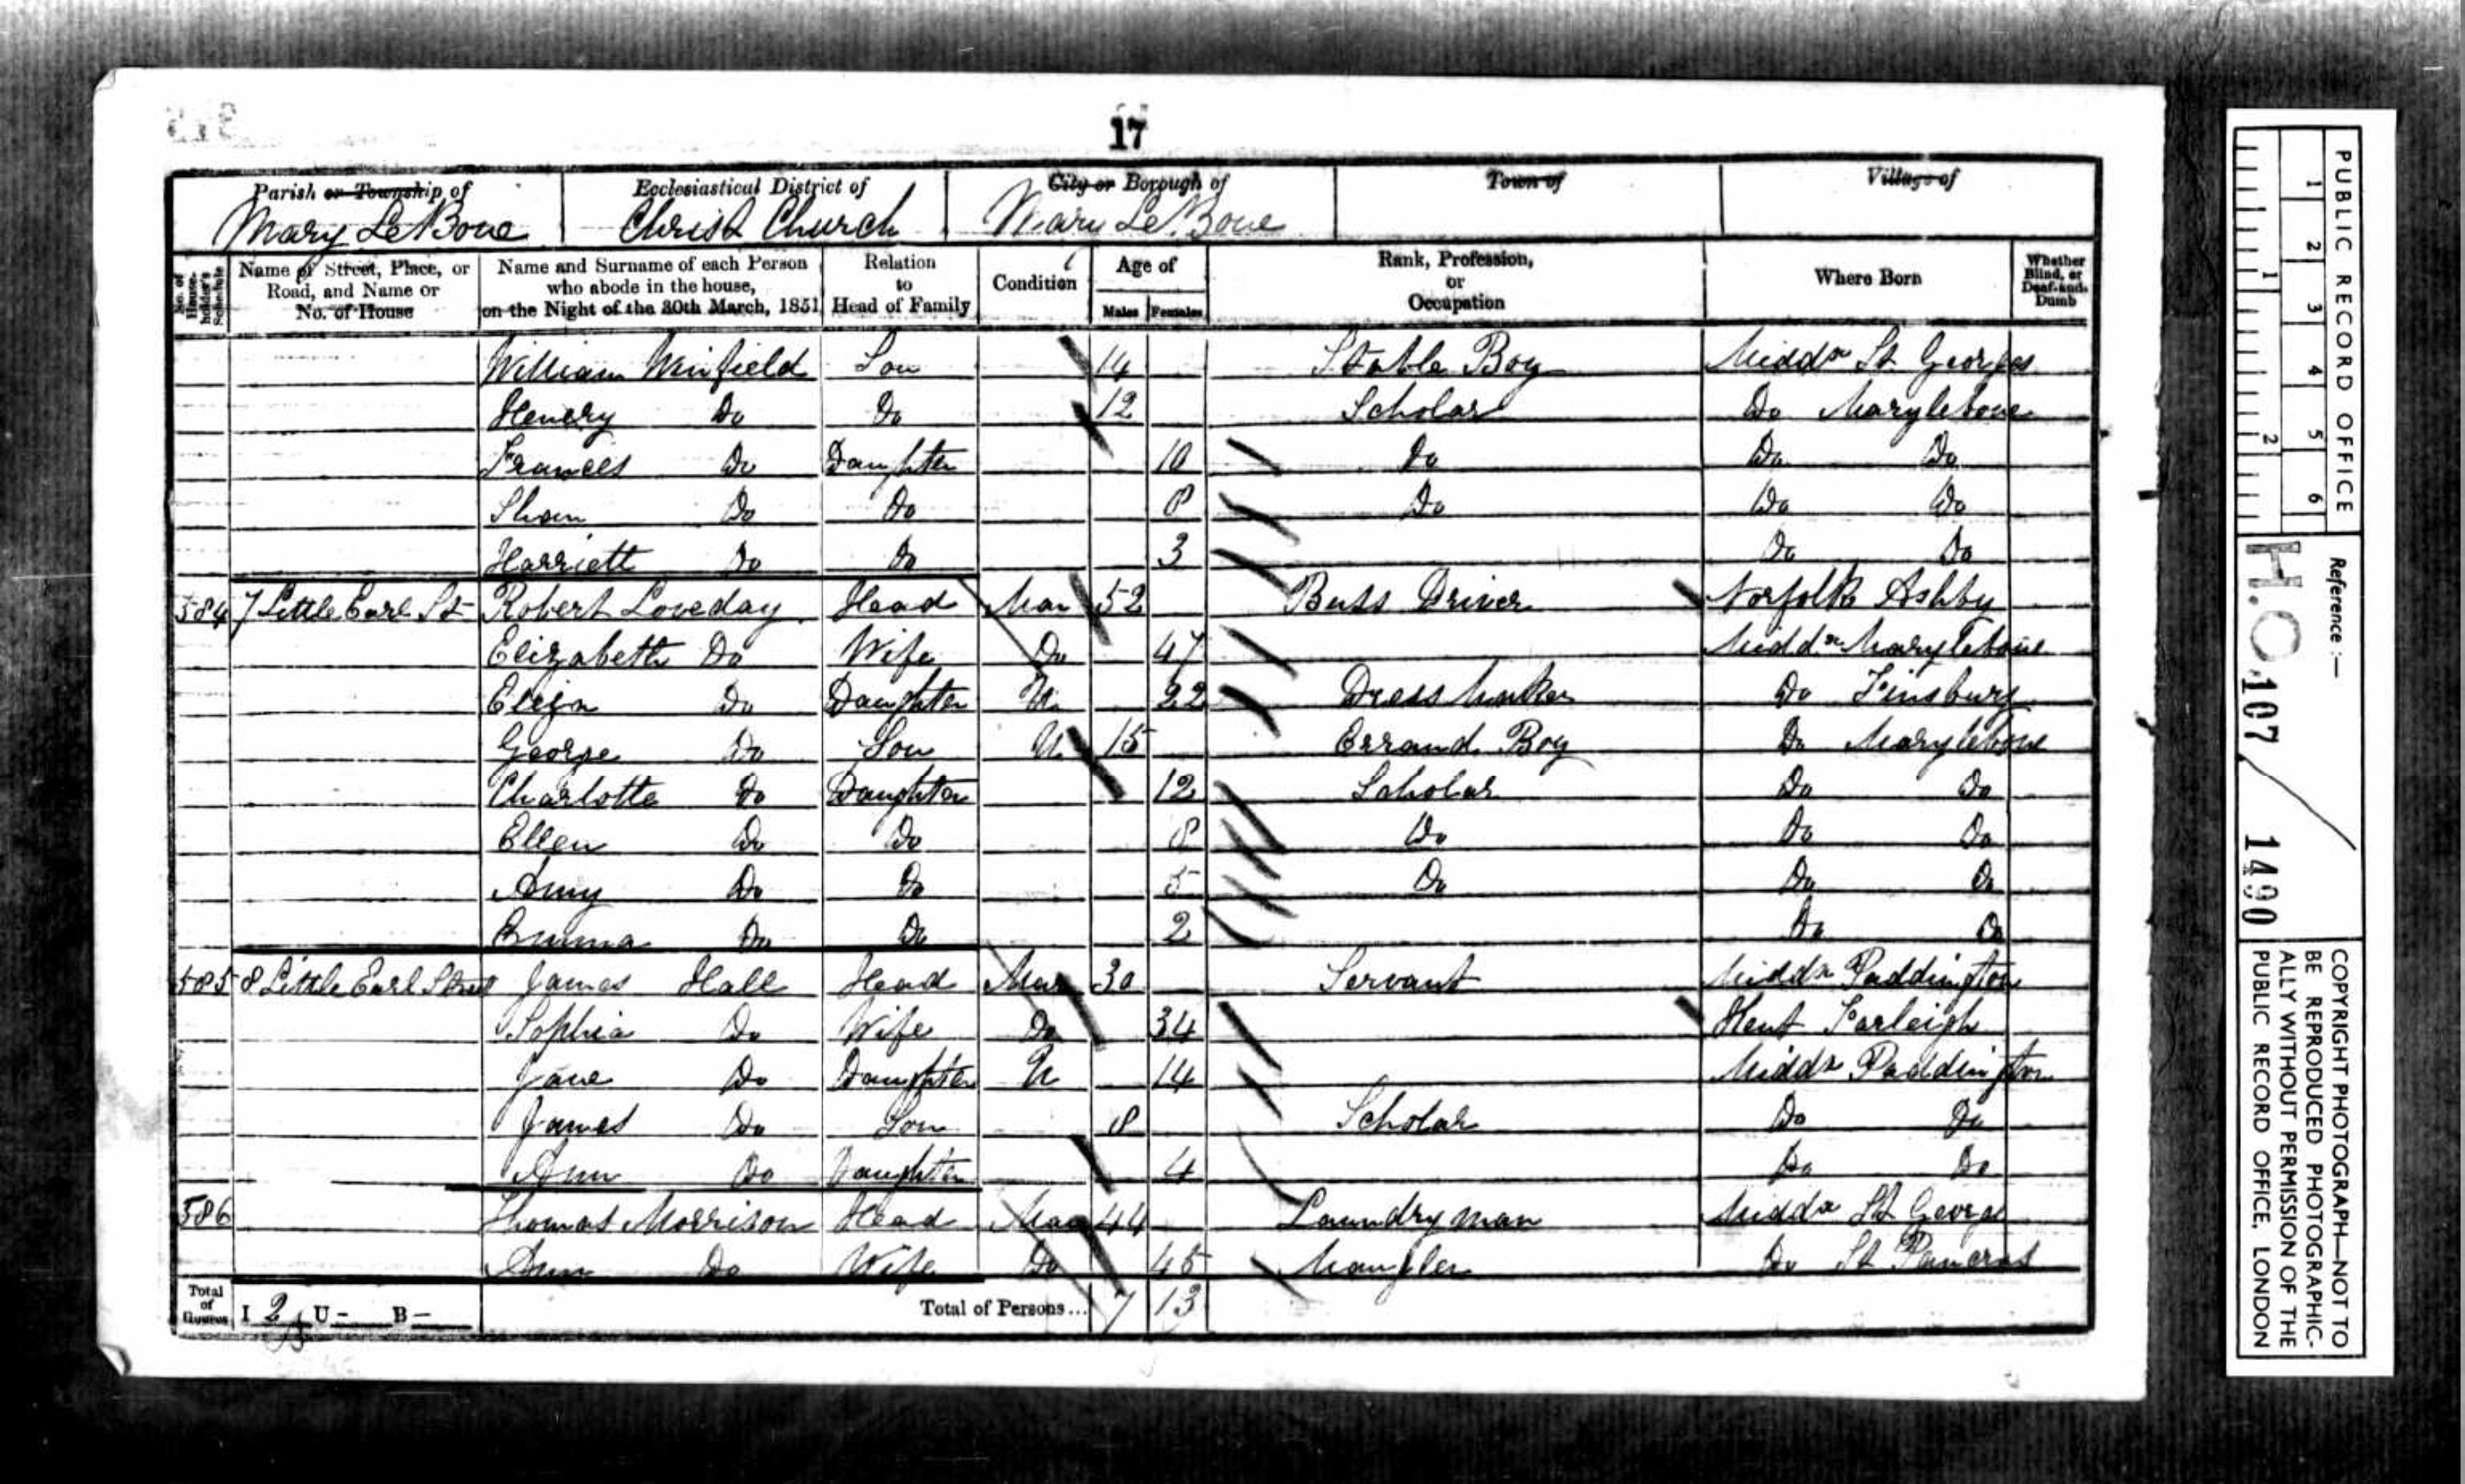 17
Parish or Township of Ecclesiastical District of City or Borough of Town of Village of
Mary LeBone Christ Church Mary LeBone
No. of House-holder's Schedule Name of Street, Place, or Road, and Name or No. of House Name and Surname of each Person who abode in the house, on the Night of the 30th March, 1851 Relation to Head of Family Condition Age of Males Females Rank, Profession, or Occupation Where Born Whether Blind, or Deaf-and-Dumb
William Winfield Son 14 Stable Boy Middx St Georges
Henery Do Do 12 Scholar Do Marylebone
Frances Do Daughter 10 Do Do Do
Do Do 8 Do Do Do
Harriett Do Do 3 Do Do
584 7 Little Earl St Robert Loveday Head Mar 52 Buss Driver Norfolk Ashby
Elizabeth Do Wife Do 47 Middx Marylebone
Eliza Do Daughter U 22 Dress Maker Do Finsbury
George Do Son U 15 Errand Boy Do Marylebone
Charlotte Do Daughter 12 Scholar Do Do
Ellen Do Do 8 Do Do Do
Amy Do Do 5 Do Do Do
Emma Do Do 2 Do Do
585 8 Little Earl Street James Hall Head Mar 30 Servant Middx Paddington
Sophia Do Wife Do 34 Kent Farleigh
Jane Do Daughter U 14 Middx Paddington
James Do Son 8 Scholar Do Do
Ann Do Daughter 4 Do Do
586 Thomas Morrison Head Mar 44 Laundryman Middx St George
Ann Do Wife Do 45 Mangler Do St Pancras
Total of Houses I 2 U - B - Total of Persons... 7 13
PUBLIC RECORD OFFICE
1 2 3 4 5 6
1 2
Reference :—
H.O. 107 / 1490
COPYRIGHT PHOTOGRAPH—NOT TO
BE REPRODUCED PHOTOGRAPHIC-
ALLY WITHOUT PERMISSION OF THE
PUBLIC RECORD OFFICE, LONDON